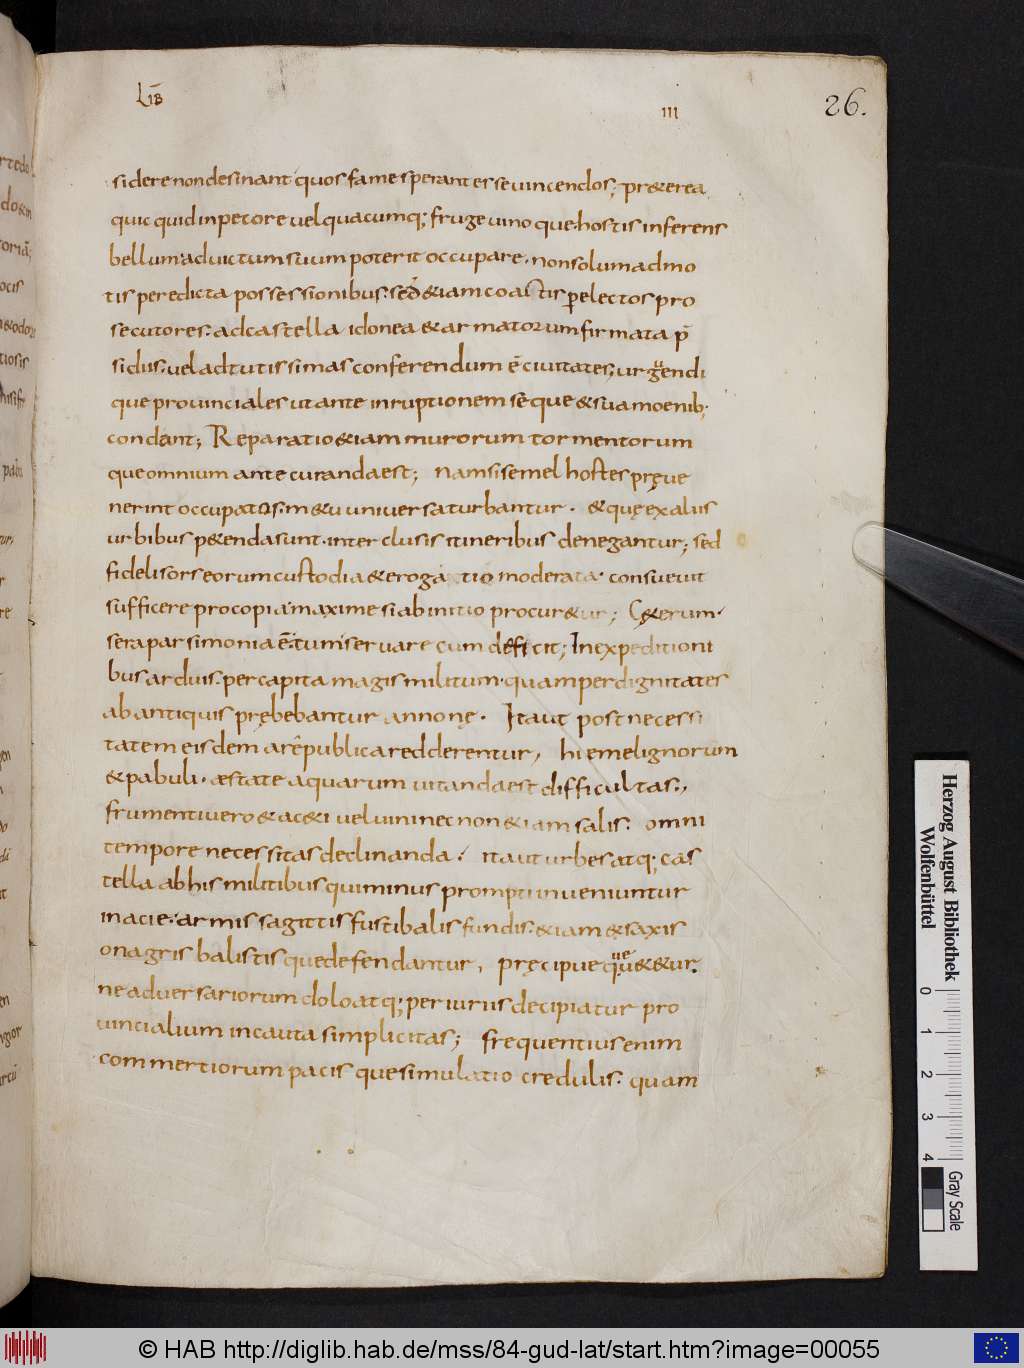 LIB̄
III
26.
sidere non desinant quos fame sperant esse uincendos; pr&erea
quic quid in pecore uel quacumq; fruge uino que. hostis inferens
bellum. aduictum suum poterit occupare. non solum admo
tis per edicta possessionibus. sed &iam coactis p electos pro
secutores. ad castella idonea & armatorum firmata p̄
sidiis. uel ad tutissimas conferendum ē ciuitates; urgendi
que prouinciales ut ante inruptionem sē que & sua moenib;
condant; Reparatio &iam murorum tormentorum
que omnium ante curanda est; nam si semel hostes pręue
nerint occupatos. m&u uniuersa turbantur. & quę ex aliis
urbibus p&enda sunt. interclusis itineribus denegantur; sed
fidelis orseorum custodia & eroga tio moderata. consueuit
sufficere pro copia maxime si ab initio procur&ur; C&erum.
sera parsimonia ē. tum seruare cum deficit; In expeditioni
bus arduis. per capita magis militum. quam per dignitates
ab antiquis prębebantur annonę. Ita ut post necessi
tatem eisdem a rē publica redderentur, hieme lignorum
& pabuli. æstate aquarum uitanda est difficultas.,
frumenti uero & ac&i uel uini nec non &iam salis. omni
tempore necessitas declinanda. ita ut urbes atq; cas
tella ab his militibus qui minus prompti inueniuntur
in acie. armis sagittis fustibalis fundis. &iam & saxis
onagris balistis que defendantur, pręcipue q;u&&ur.
ue
ne aduersariorum dolo atq; periuriis decipiatur pro
uincialium incauta simplicitas; frequentius enim
commertiorum pacis que simulatio credulis. quam
Herzog August Bibliothek
Wolfenbüttel
0 1 2 3 4
Gray Scale
© HAB http://diglib.hab.de/mss/84-gud-lat/start.htm?image=00055